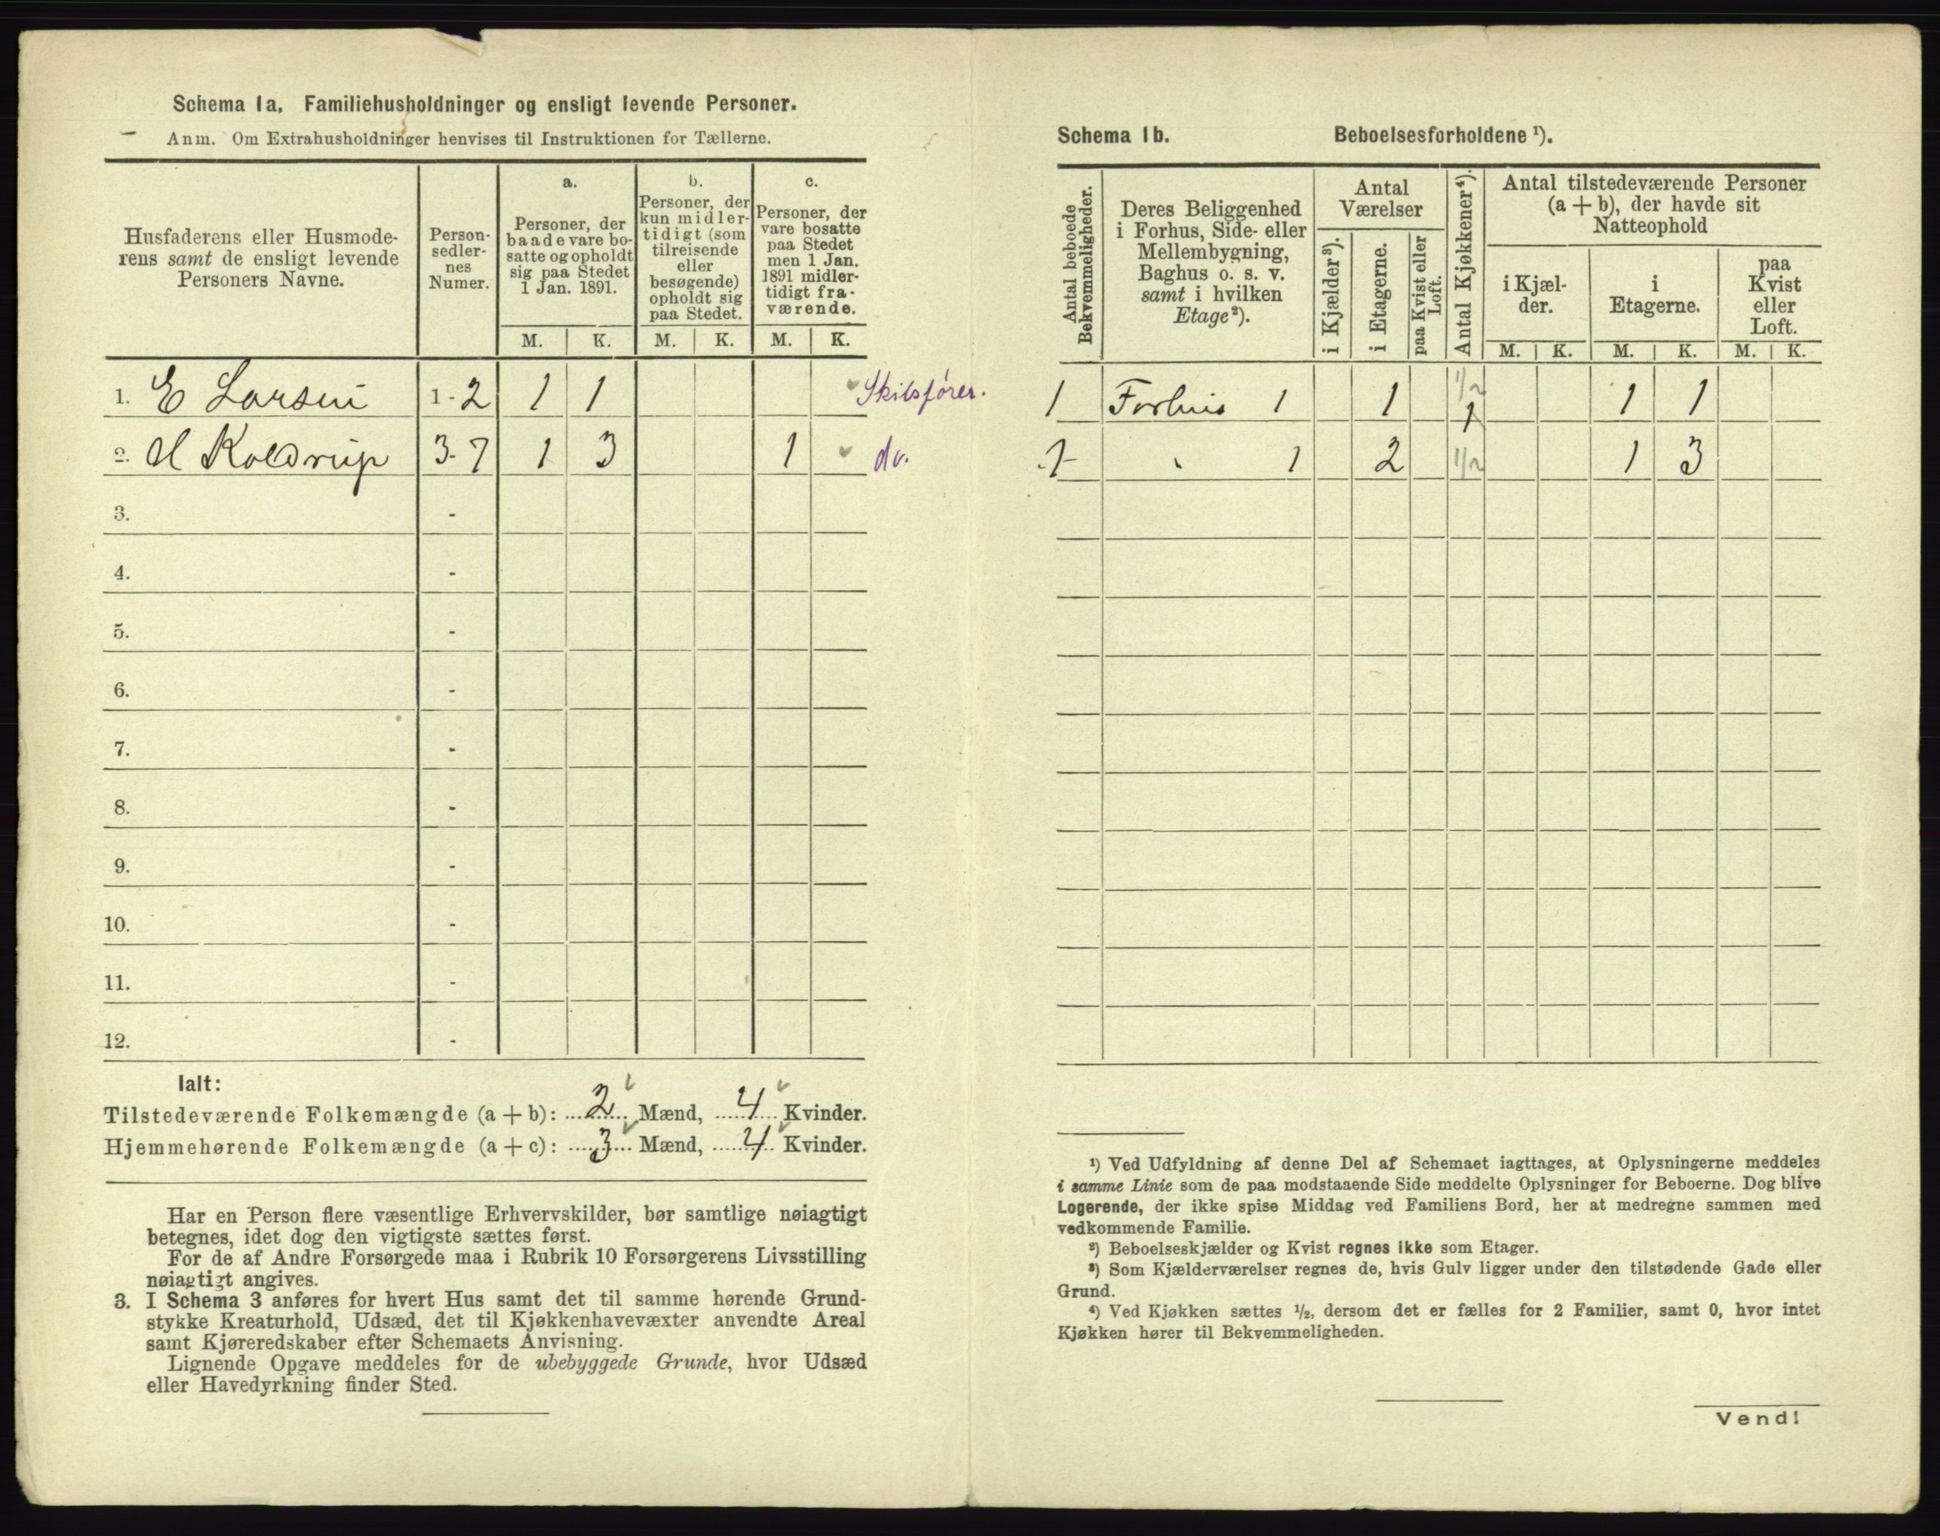 Schema 1a. Familiehusholdninger og ensligt levende Personer.
Anm. Om Extrahusholdninger henvises til Instruktionen for Tællerne.
Husfaderens eller Husmoderens samt de ensligt levende Personers Navne.
Personsedlernes Numer.
a.
Personer, der baade vare bosatte og opholdt sig paa Stedet 1 Jan. 1891.
b.
Personer, der kun midlertidigt (som tilreisende eller besøgende) opholdt sig paa Stedet.
c.
Personer, der vare bosatte paa Stedet men 1 Jan. 1891 midlertidigt fraværende.
M. K. M. K. M. K.
1. E Larsen 1-2 1 1 Skilsfører.
2. H Koldrup 3-7 1 3 1 do.
3. -
4. -
5. -
6. -
7. -
8. -
9. -
10. -
11. -
12. -
Ialt:
Tilstedeværende Folkemængde (a + b): 2 Mænd, 4 Kvinder.
Hjemmehørende Folkemængde (a + c): 3 Mænd, 4 Kvinder.
Har en Person flere væsentlige Erhvervskilder, bør samtlige nøiagtigt
betegnes, idet dog den vigtigste sættes først.
For de af Andre Forsørgede maa i Rubrik 10 Forsørgerens Livsstilling
nøiagtigt angives.
3. I Schema 3 anføres for hvert Hus samt det til samme hørende Grund-
stykke Kreaturhold, Udsæd, det til Kjøkkenhavevæxter anvendte Areal
samt Kjøreredskaber efter Schemaets Anvisning.
Lignende Opgave meddeles for de ubebyggede Grunde, hvor Udsæd
eller Havedyrkning finder Sted.
Schema 1b. Beboelsesforholdene ¹).
Antal beboede Bekvemmeligheder.
Deres Beliggenhed i Forhus, Side- eller Mellembygning, Baghus o. s. v. samt i hvilken Etage²).
Antal Værelser
i Kjælder³).
i Etagerne.
paa Kvist eller Loft.
Antal Kjøkkener⁴).
Antal tilstedeværende Personer (a + b), der havde sit Natteophold
i Kjælder.
i Etagerne.
paa Kvist eller Loft.
M. K. M. K. M. K.
1 Forhus 1 1 1/2 1 1 1
1 " 1 2 1/2 1 3
¹) Ved Udfyldning af denne Del af Schemaet iagttages, at Oplysningerne meddeles
i samme Linie som de paa modstaaende Side meddelte Oplysninger for Beboerne. Dog blive
Logerende, der ikke spise Middag ved Familiens Bord, her at medregne sammen med
vedkommende Familie.
²) Beboelseskjælder og Kvist regnes ikke som Etager.
³) Som Kjælderværelser regnes de, hvis Gulv ligger under den tilstødende Gade eller
Grund.
⁴) Ved Kjøkken sættes ½, dersom det er fælles for 2 Familier, samt 0, hvor intet
Kjøkken hører til Bekvemmeligheden.
Vend!